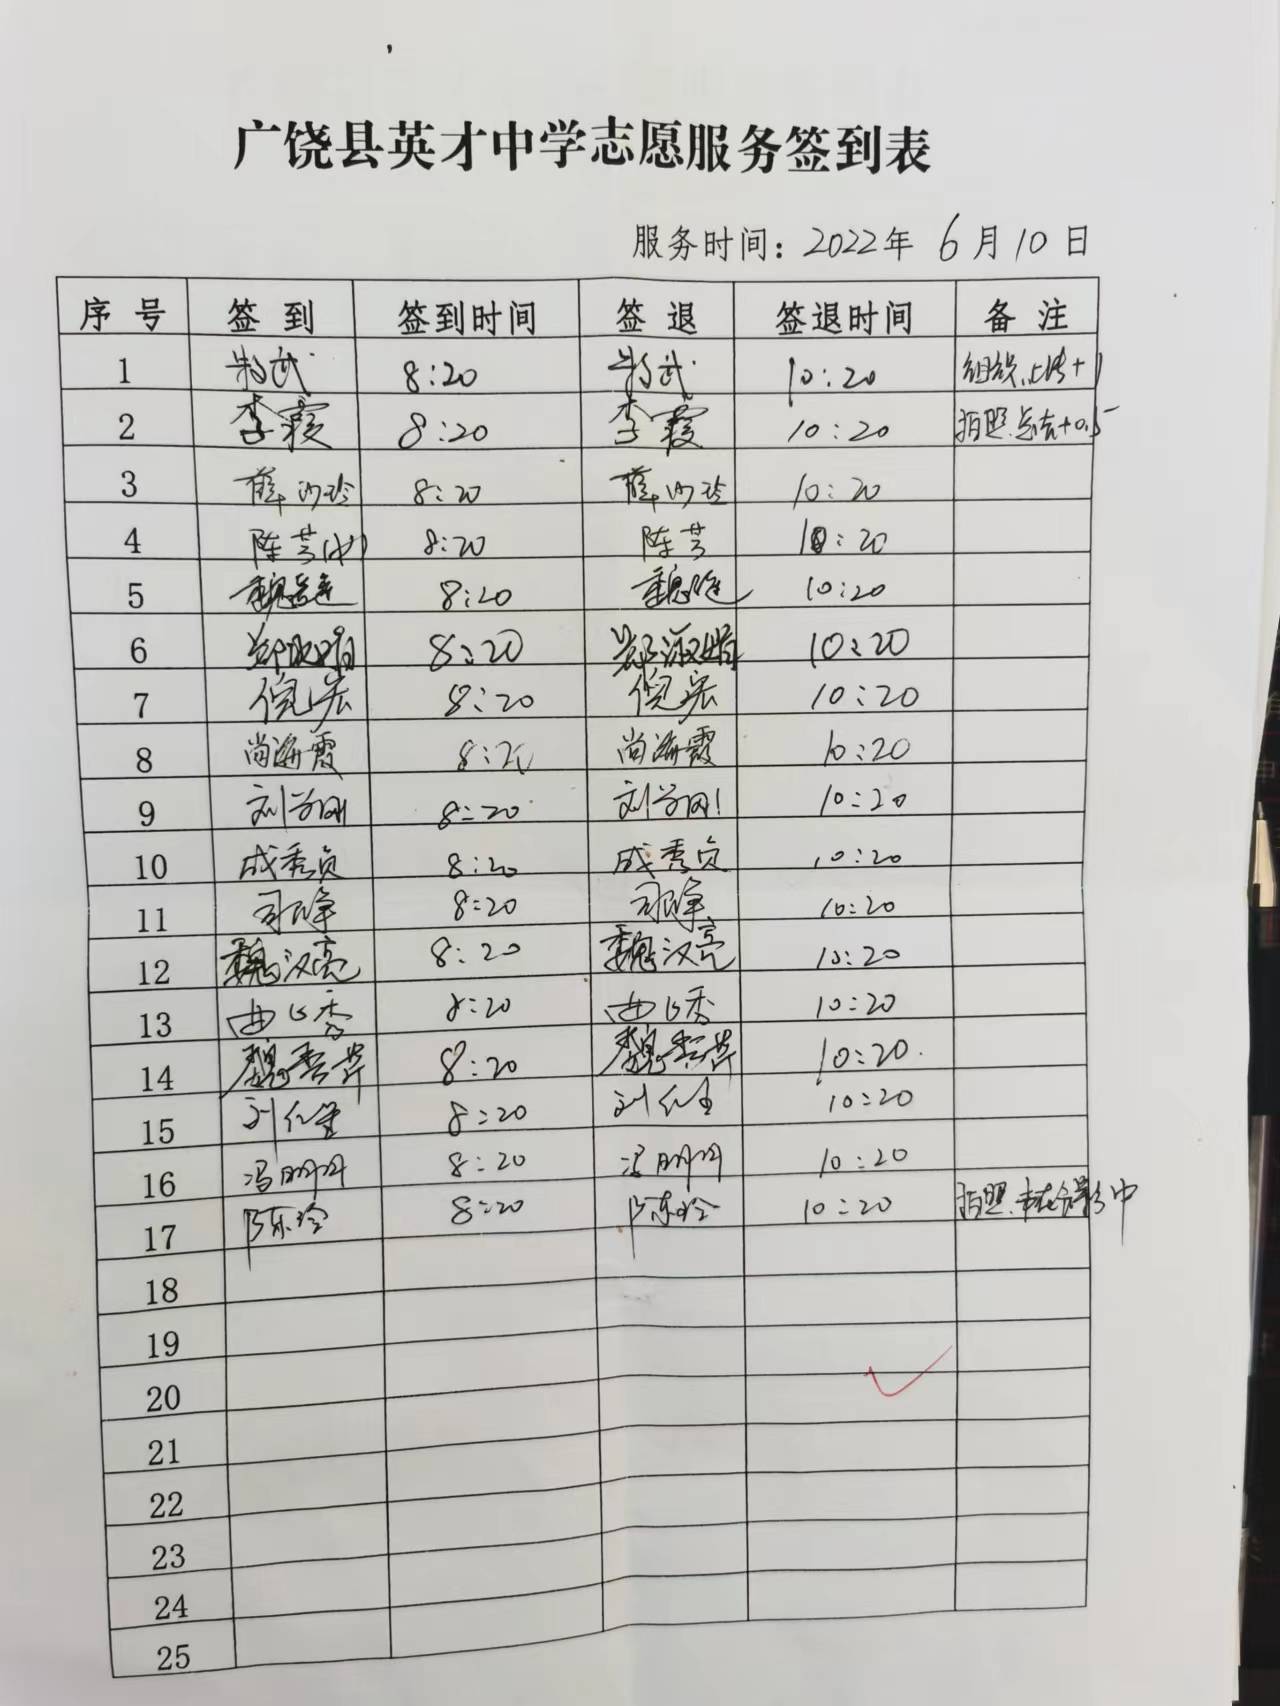 广饶县英才中学志愿服务签到表
服务时间：2022年 6月10日
序号 签到 签到时间 签退 签退时间 备注
1 8:20 10:20 组织、上传+1
2 李霞 8:20 李霞 10:20 拍照、总结+0.5
3 8:20 10:20
4 陈芳(小) 8:20 陈芳 10:20
5 8:20 10:20
6 8:20 10:20
7 倪宏 8:20 倪宏 10:20
8 尚海霞 8:20 尚海霞 10:20
9 8:20 10:20
10 成秀贞 8:20 成秀贞 10:20
11 8:20 10:20
12 魏汉亮 8:20 魏汉亮 10:20
13 8:20 10:20
14 魏秀芹 8:20 魏秀芹 10:20
15 8:20 10:20
16 冯明明 8:20 冯明明 10:20
17 陈玲 8:20 陈玲 10:20 拍照、未在合影中
18
19
20
21
22
23
24
25